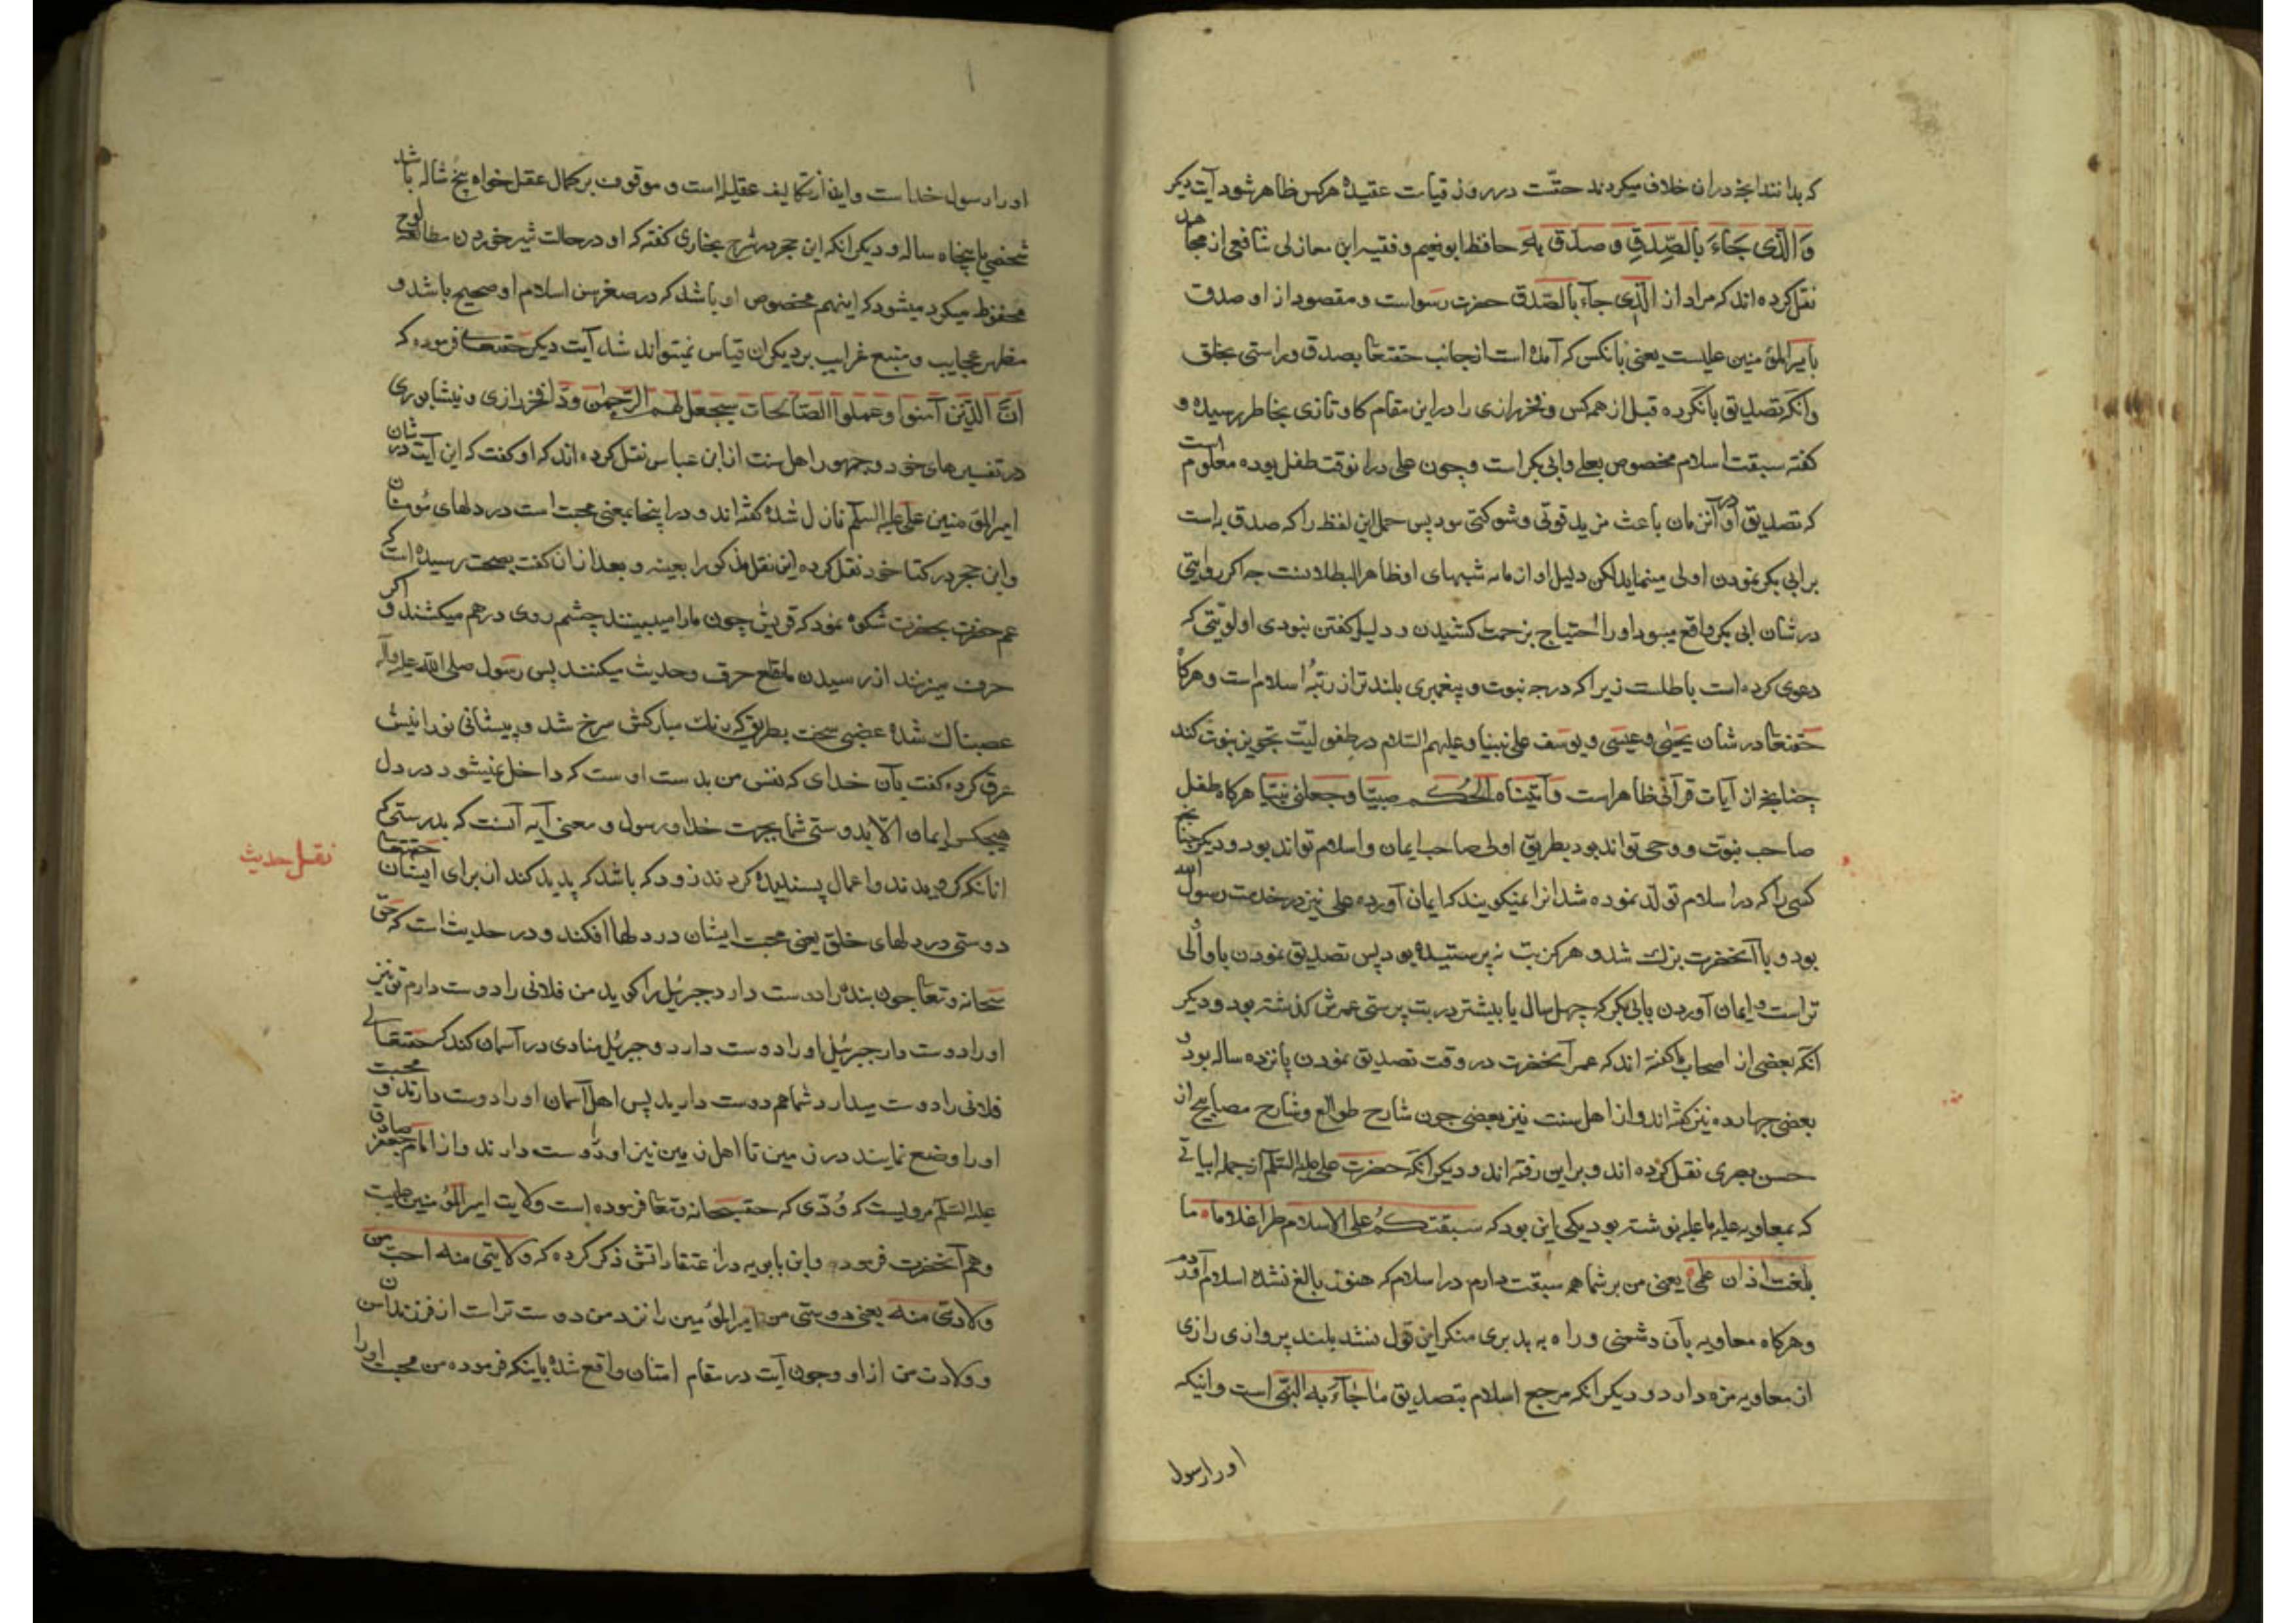 که بدانند آنچه در آن خلاف میکردند حقّست در روز قیامت عقیدهٔ هرکس ظاهر شود آیت دیکر
وَالَّذی جَاءَ بِالصِّدقِ وَ صَدَّقَ بِهِ حافظ ابونعیم و فقیه ابن مغازلی شافعی از مجاهد
نقل کرده اند که مراد از الَّذِی جآءَ بالصّدق حضرت رسولست و مقصود از او صدق
بامیرالمؤمنین علیست یعنی بانکس که آمده است از جانب حقتعا بصدق وراستی بخلق
وانکه تصدیق بانکرده قبل از همه کس و فخر رازی را در این مقام کاو تازی بخاطر رسیده و
کفته سبقت اسلام مخصوص بعلی وابی بکر است وچون علی در انوقت طفل بوده معلوم است
که تصدیق او در آنزمان باعث مزید قوتی وشوکتی نبود پس حمل این لفظ را که صدق به است
بر ابی بکر نمودن اولی مینماید لکن دلیل او از شبهای او ظاهر البطلانست چه اکر روایتی
در شان ابی بکر واقع میبود او را احتیاج بزحمت کشیدن و دلیل کفتن نبودی اولویّتی که
دعوی کرده است باطلست زیرا که درجه نبوت و پیغمبری بلندتر از رتبهٔ اسلام است و هرکاه
حقتعا در شان یحیی وعیسی ویوسف علی نبینا وعلیهم السلام در طفولیّت تجویز نبوت کند
چنانچه از آیات قرآنی ظاهر است وآتَیناه الحُکم صبیّا وجعلنی نبیّا هرکاه طفل
صاحب نبوت ووحی تواند بود بطریق اولی صاحب ایمان واسلام تواند بود ودیکر چنانچه
کسی را که در اسلام تولد نموده شد انرا نمیکویند که ایمان آورده علی نیز در خدمت رسول الله
بود و با آنحضرت بزرک شد و هرکز بت نه پرستیده بود پس تصدیق نمودن باو اولی
تر است و ایمان آوردن بابی بکر که چهل سال یا بیشتر در بت پرستی عمرش کذشته بود ودیکر
انکه بعضی از اصحاب ما کفته اند که عمر آنحضرت در وقت تصدیق نمودن پانزده ساله بود و
بعضی چهارده نیز کفته اند واز اهل سنت نیز بعضی چون شارح طوالع وشارح مصابیح از
حسن بصری نقل کرده اند وبر این رفته اند ودیکر انکه حضرت علی علیه السّلم از جمله ابیاتی
که بمعاویه علیه ما علیه نوشته بود یکی این بود که سبقتکُم علی الاسلام طرا غلاما ما
بلغت اوان حلمی یعنی من بر شما همه سبقت دارم در اسلام که هنوز بالغ نشده اسلام آوردم
وهرکاه معاویه بآن دشمنی وراه به بدبری منکر این قول نشد بلند پروازی رازی
از معاویه مزه دارد ودیکر انکه مرجع اسلام بتصدیق ماجاءَ به النبی است وانیکه
او را رسول
او را رسول خداست و این از تکالیف عقلیه است و موقوف بر کمال عقل خواه پنج ساله باشد
شخصی یا پنجاه ساله و دیکر انکه ابن حجر در شرح بخاری کفته که او در حالت شیر خوردن مطالعه لوح
محفوظ میکرد میشود که اینهم مخصوص او باشد که در صغر سن اسلام او صحیح باشد و
مظهر عجایب و منبع غرایب بر دیکران قیاس نمیتواند شد آیت دیکر حقتعالی فرموده که
اِنَّ الَّذین آمنوا وعملوا الصّالحات سیجعل لهم الرّحمن ودّا فخر رازی و نیشابوری
در تفسیرهای خود وجمهور اهل سنت از ابن عباس نقل کرده اند که او کفت که این آیت در شان
امیرالمؤمنین علی علیه السلم نازل شده کفته اند و در اینجا بمعنی محبت است در دلهای مؤمنان
وابن حجر در کتاب خود نقل کرده این نقل مذکور را بعینه و بعد از ان کفت بصحت رسیده است که
عم حضرت بحضرت شکوه نمود که قریش چون ما را میبینند چشم روی درهم میکشند و اکر
حرف میزنند از رسیدن ما قطع حرف وحدیث میکنند پس رسول صلی الله علیه وآله
غضبناک شده غضبی سخت بطریقی که رنک مبارکش سرخ شد و پیشانی نورانیش
عرق کرده کفت بآن خدای که نفس من بدست اوست که داخل نمیشود در دل
هیچکس ایمان الّا بدوستی شما بجهت خدا و رسول و معنی آیه آنست که بدرستی که
انانکه کرویدند و اعمال پسندیده کردند زود که باشد که پدید کند از برای ایشان حقتعا
نقل حدیث
دوستی در دلهای خلق یعنی محبت ایشان در دلها افکند و در حدیث است که حق
سبحانه وتعا چون بنده را دوست دارد جبرئیل را کوید من فلانی را دوست دارم تو نیز
او را دوست دار جبرئیل او را دوست دارد و جبرئیل منادی در آسمان کند که حقتعالی
فلانی را دوست میدارد شما هم دوست دارید پس اهل آسمان او را دوست دارند و محبت
او را وضع نمایند در زمین تا اهل زمین نیز او را دوست دارند و از امام جعفر صادق
علیه السّلم مرویست که وُدّی که حق سبحانه وتعا فرموده است ولایت امیرالمؤمنین علیست
وهم آنحضرت فرمود وابن بابویه در اعتقاداتش ذکر کرده که ولایتی منه احب من
ولادتی منه یعنی دوستی من امیرالمؤمنین را نزد من دوست تر است از فرزندان من
و ولادت من از او وچون آیت در مقام امتنان واقع شده باینکه فرموده من محبت او را